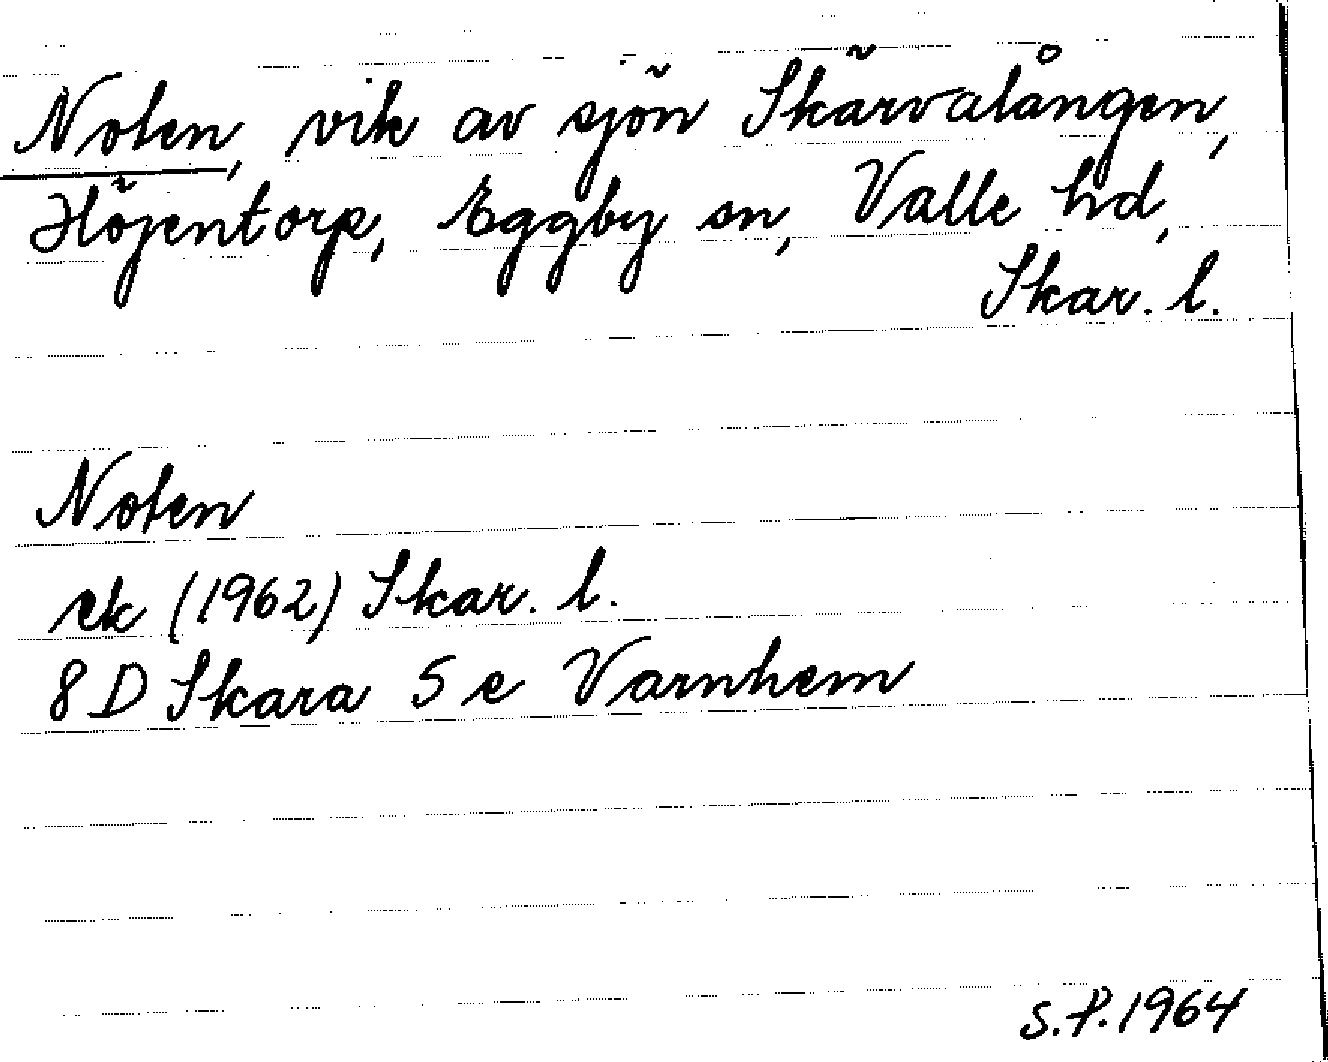 Noten, vik av sjön Skärvalången,
Höjentorp, Eggby sn, Valle hd,
Skar. l.
Noten
ek (1962) Skar. l.
8 D Skara 5 e Varnhem
S.P. 1964